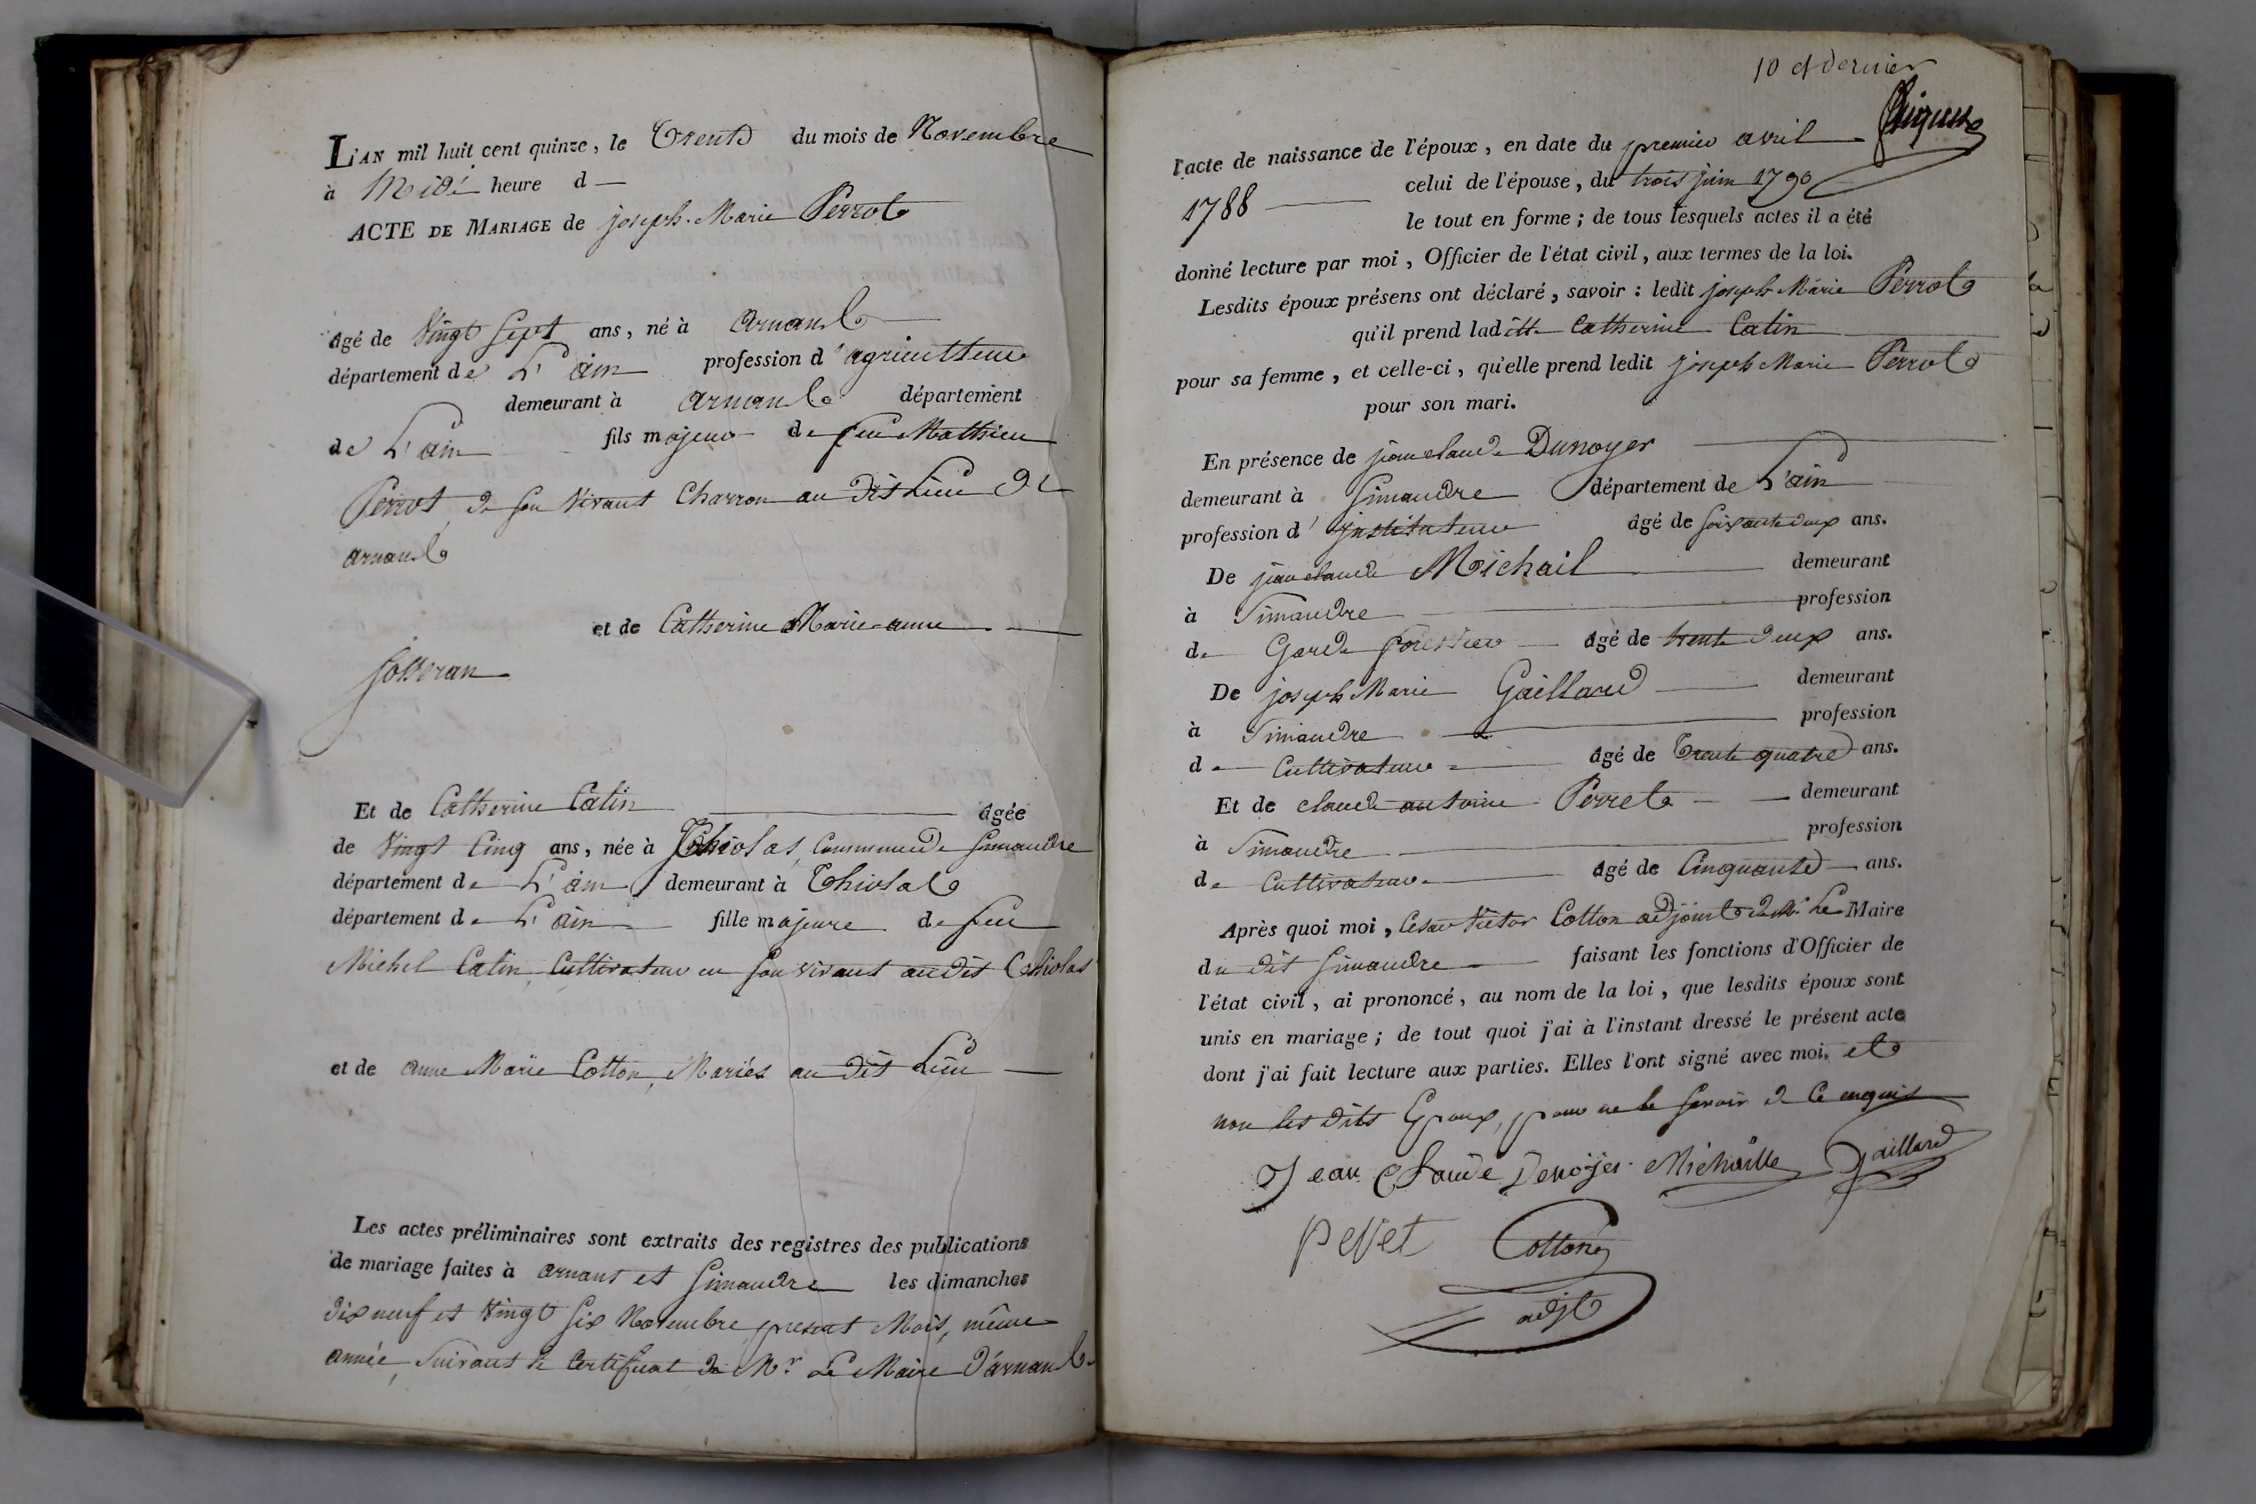 L'AN mil huit cent quinze, le Trente du mois de Novembre
à Midi heure d
ACTE DE MARIAGE de joseph Marie Perrot
âgé de Vingt Sept ans, né à arnant
département de L'ain profession d'agriculteur
demeurant à arnant département
de L'ain fils majeur de feu Mathieu
Perrot, de son Vivant Charron au dit Lieu de
arnant
et de Catherine Marie-anne
Josseran
Et de Catherine Catin âgée
de Vingt Cinq ans, née à Thiolas, Commune de Simandre
département de L'ain demeurant à Thiolat
département de L'ain fille majeure de feu
Michel Catin, Cultivateur en son vivant audit
et de anne Marie Cotton, Mariés au dit Lieu
Les actes préliminaires sont extraits des registres des publications
de mariage faites à arnant et Simandre les dimanches
dix neuf et Vingt Six Novembre, present Mois, même
année, Suivant le Certificat de Mr Le Maire d'arnant
10 et dernier
l'acte de naissance de l'époux, en date du premier avril
1788 celui de l'épouse, du trois juin 1790
le tout en forme ; de tous lesquels actes il a été
donné lecture par moi, Officier de l'état civil, aux termes de la loi.
Lesdits époux présens ont déclaré, savoir : ledit joseph Marie Perrot
qu'il prend ladite Catherine Catin
pour sa femme, et celle-ci, qu'elle prend ledit joseph Marie Perrot
pour son mari.
En présence de jean claude Dunoyer
demeurant à Simandre département de L'ain
profession d'jnstituteur âgé de soixante deux ans.
De jean claude Michail demeurant
à Simandre profession
de Garde forestier âgé de trente deux ans.
De joseph Marie Gaillard demeurant
à Simandre profession
de Cultivateur âgé de Trente quatre ans.
Et de claude antoine Perret demeurant
à Simandre profession
de Cultivateur âgé de Cinquante ans.
Après quoi moi, Cesar Victor Cotton adjoint de Mr Le Maire
du dit Simandre faisant les fonctions d'Officier de
l'état civil, ai prononcé, au nom de la loi, que lesdits époux sont
unis en mariage ; de tout quoi j'ai à l'instant dressé le présent acte
dont j'ai fait lecture aux parties. Elles l'ont signé avec moi. et
non les dits Epoux, pour ne le savoir de ce enquis
Jean Claude Denoyer Michaille Gaillard
perret Cotton
adjt